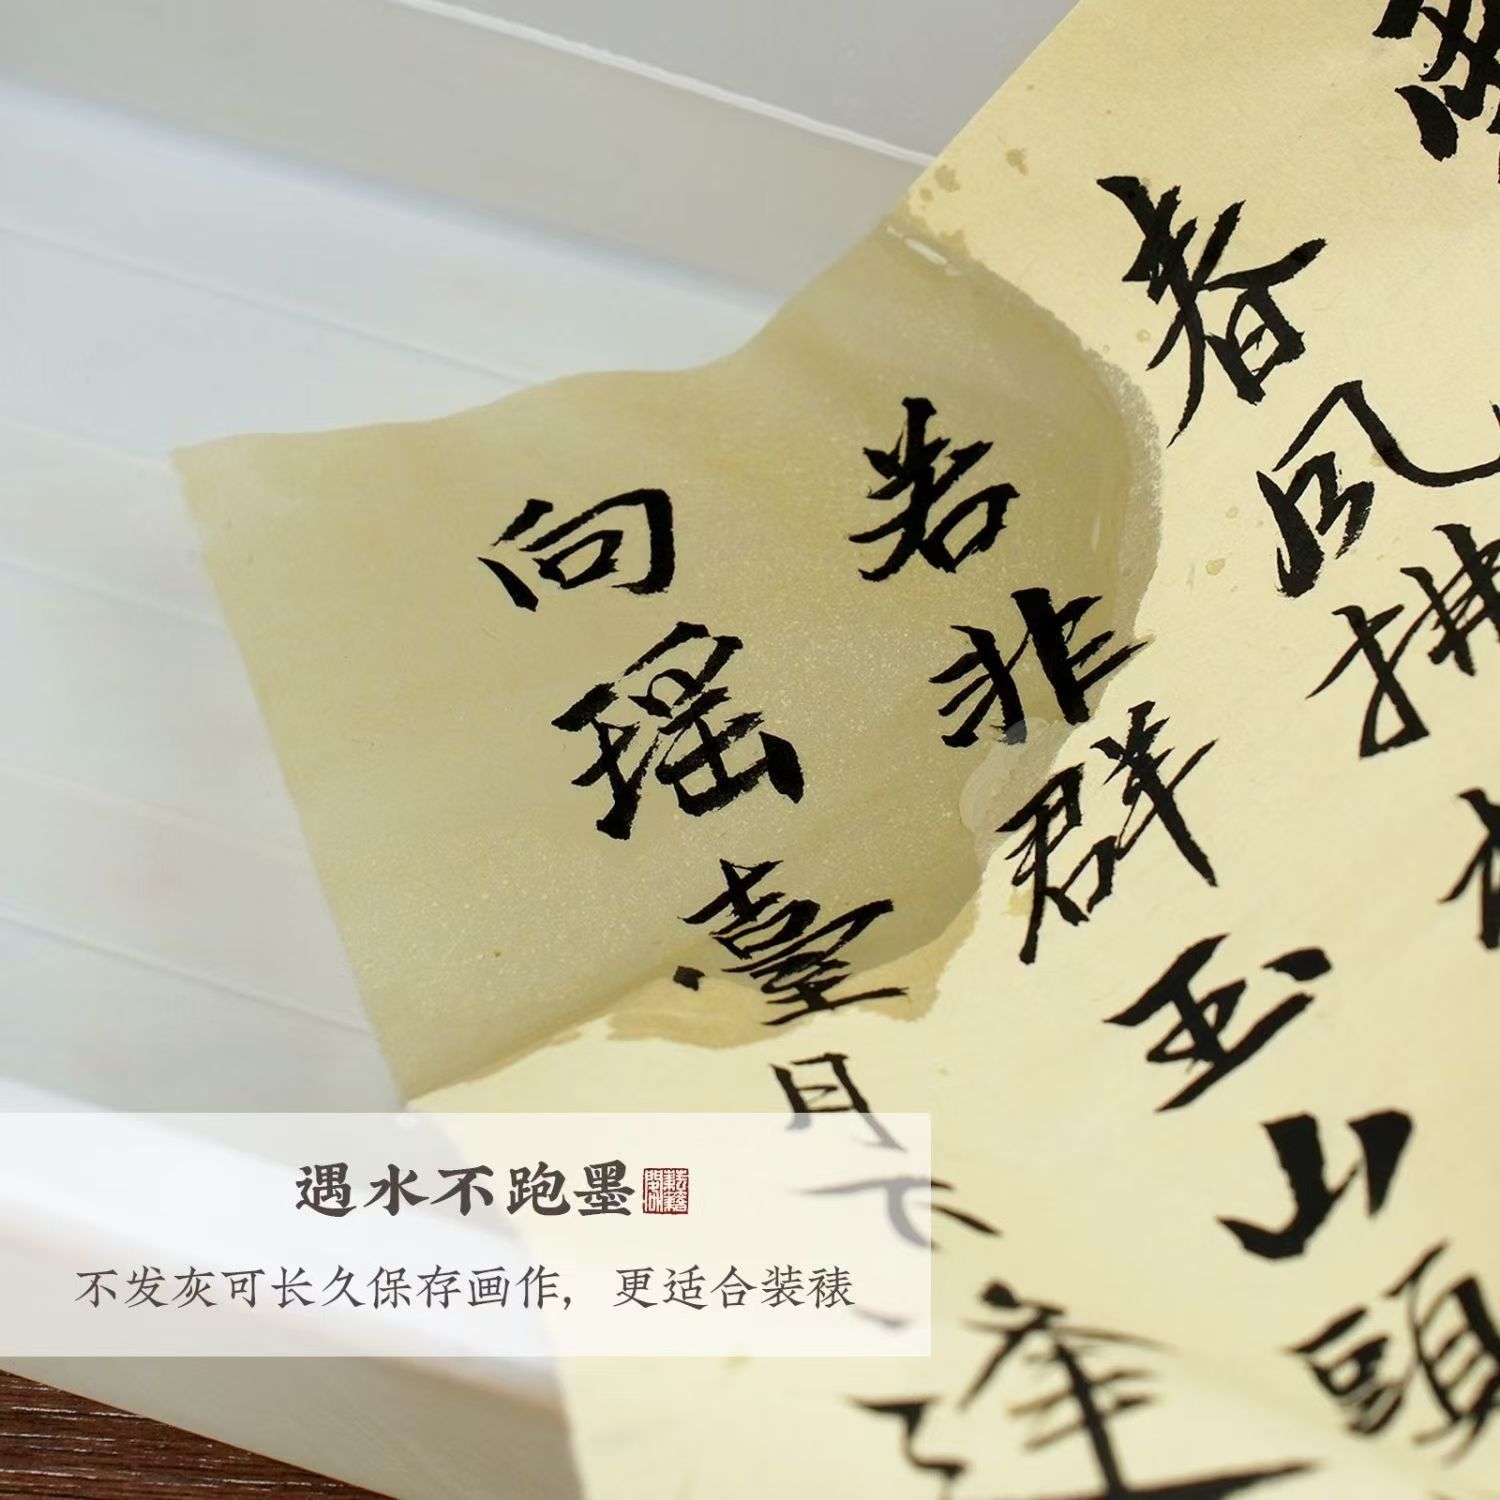 春風拂
若非群玉山頭
向瑶臺月下逢
遇水不跑墨
不发灰可长久保存画作，更适合装裱